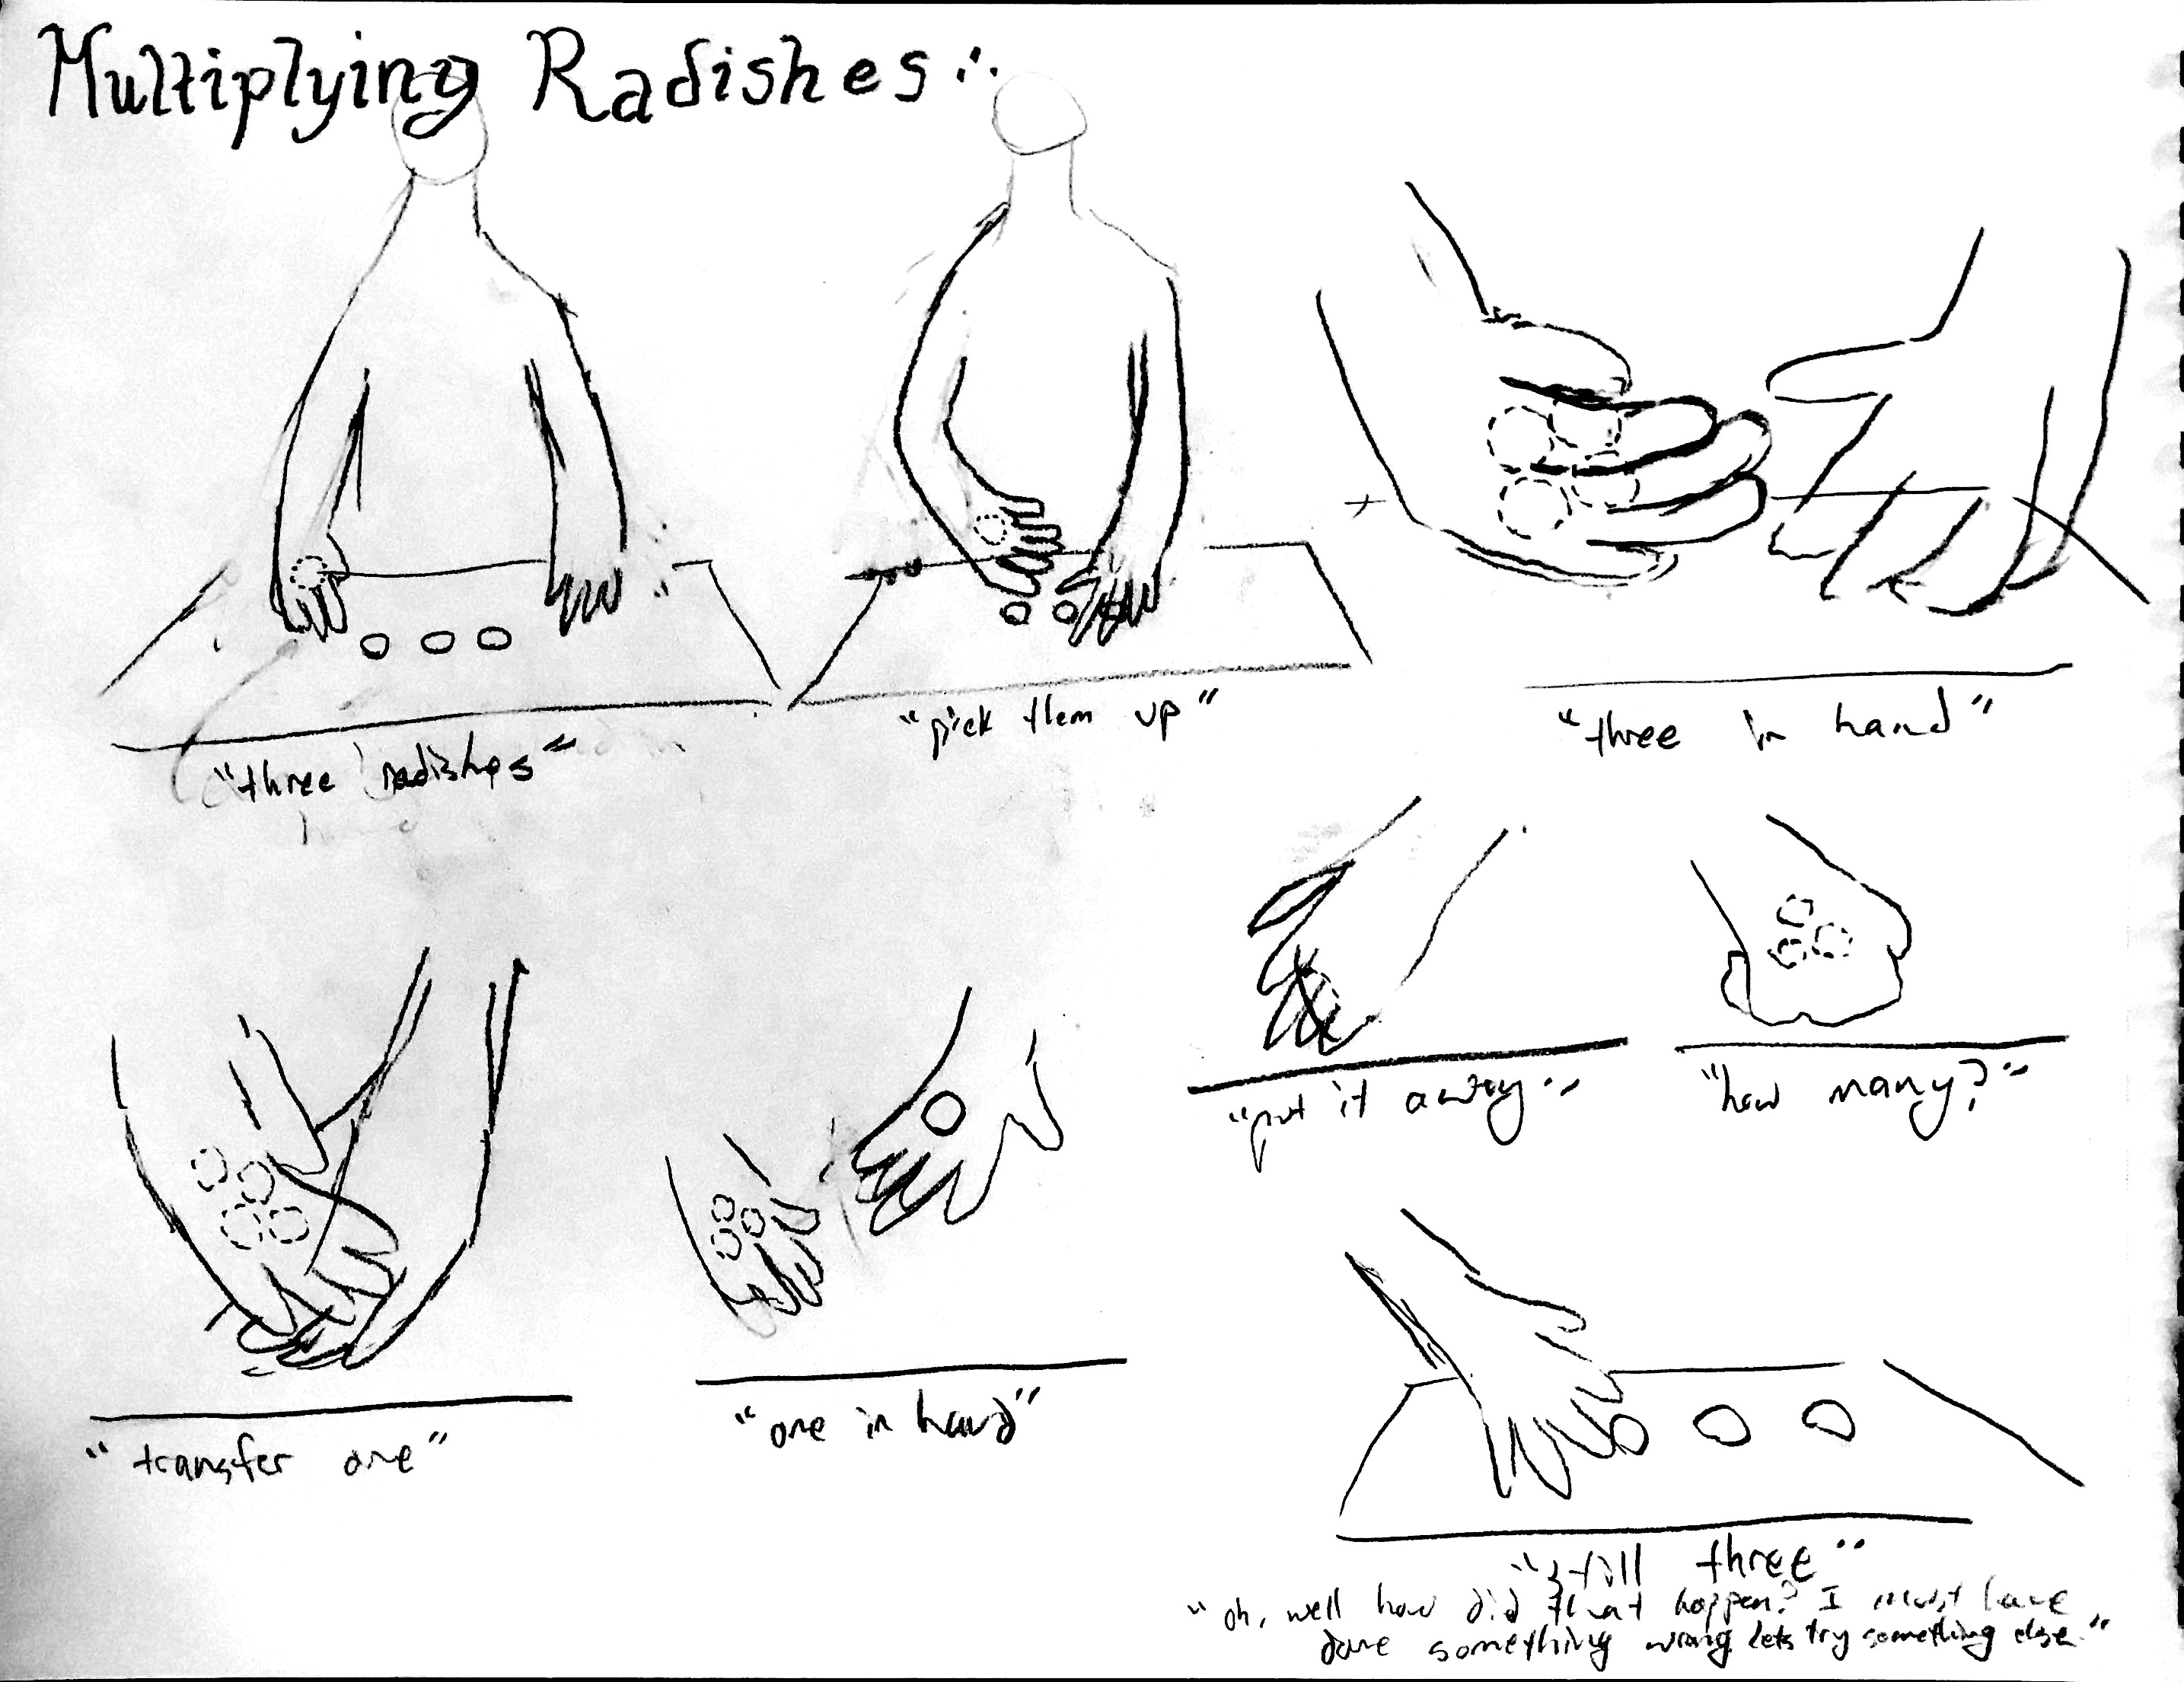 Multiplying Radishes:
"three radishes"
"pick them up"
"three in hand"
"put it away"
"how many?"
"transfer one"
"one in hand"
"still three"
"oh, well how did that happen? I must have
done something wrong lets try something else"